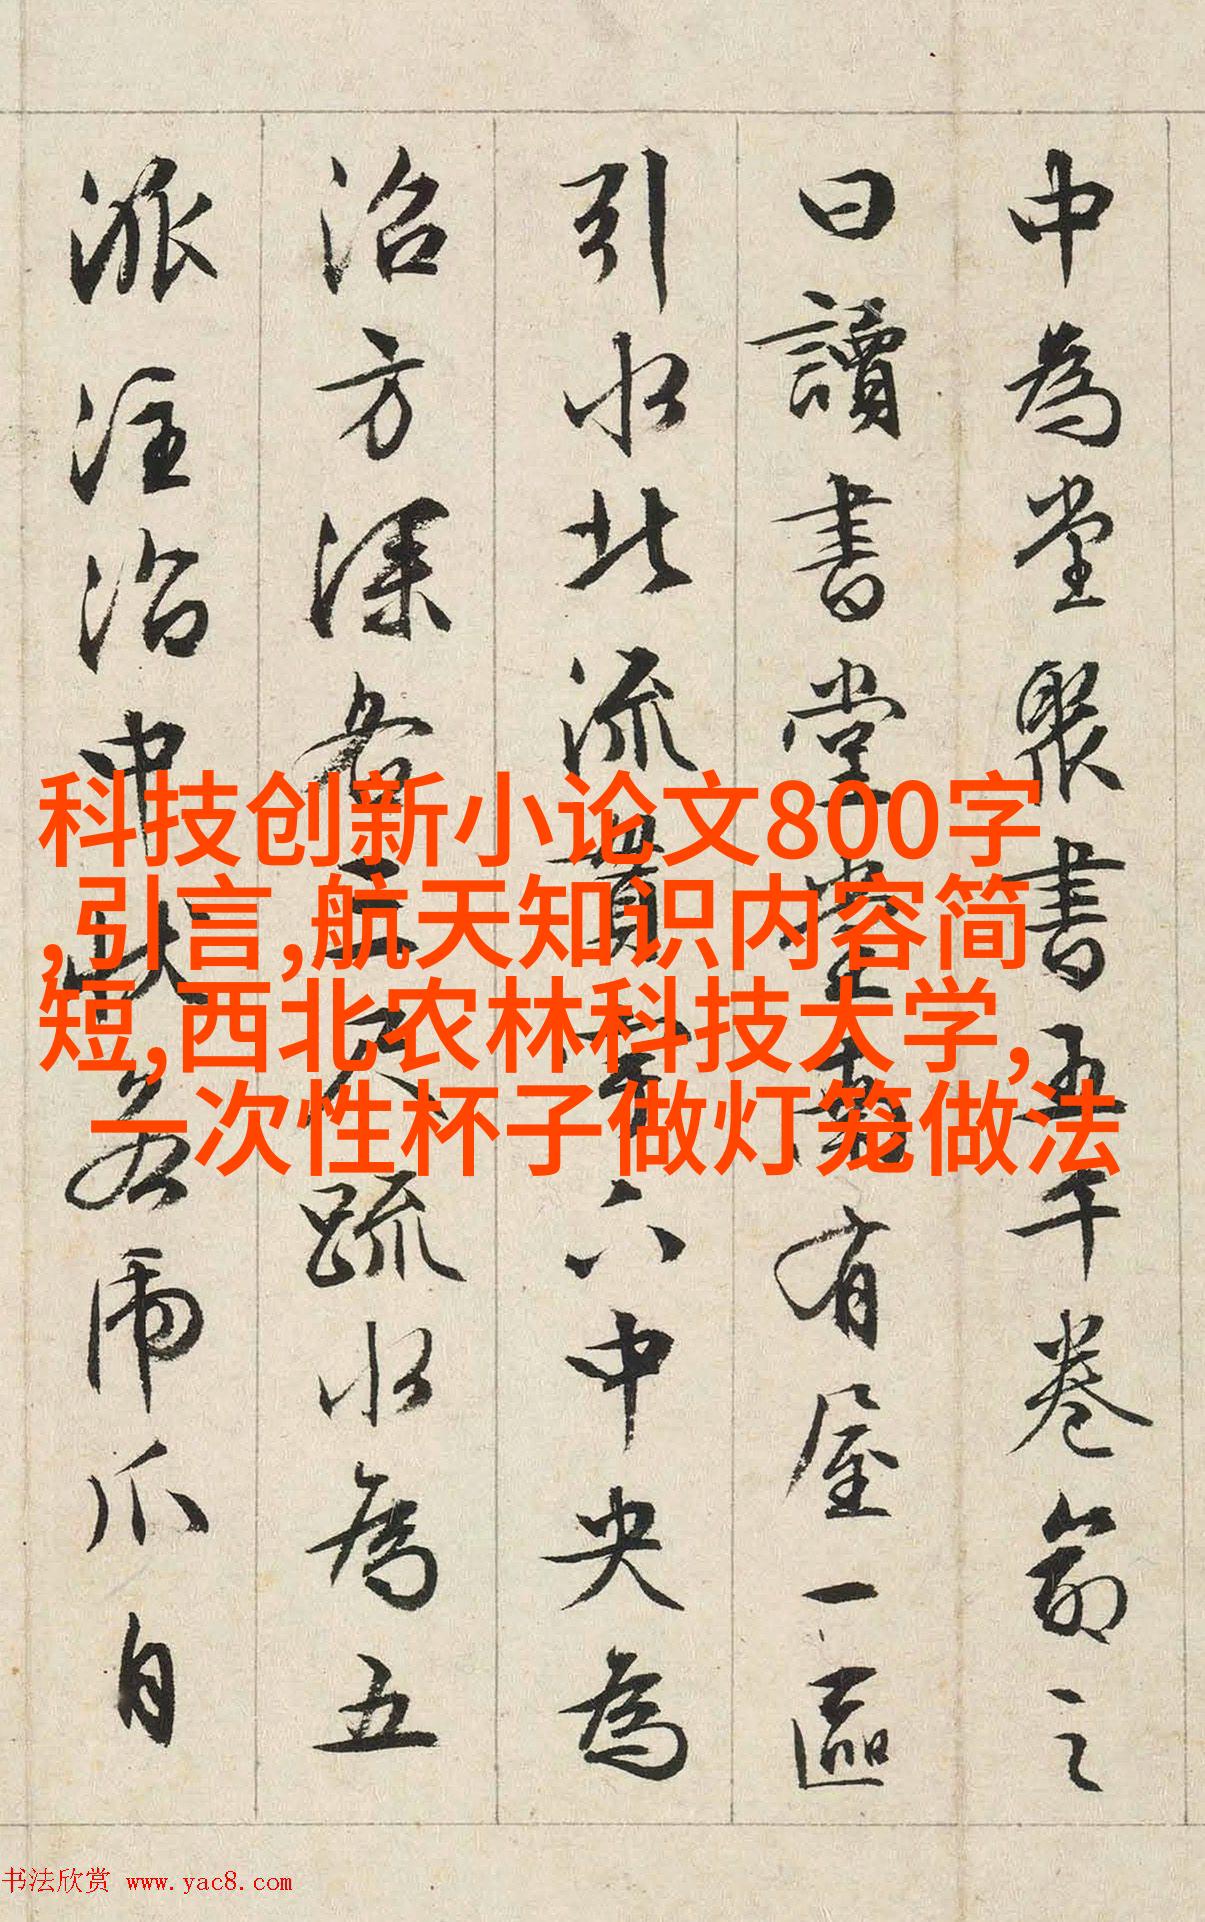 中為堂聚書五千卷命之
曰讀書堂堂南有屋一區
引水北流貫宇下中央為
沼方深各三尺疏水為五
派注沼中狀若虎爪自
科技创新小论文800字
,引言,航天知识内容简
短,西北农林科技大学,
一次性杯子做灯笼做法
书法欣赏 www.yac8.com